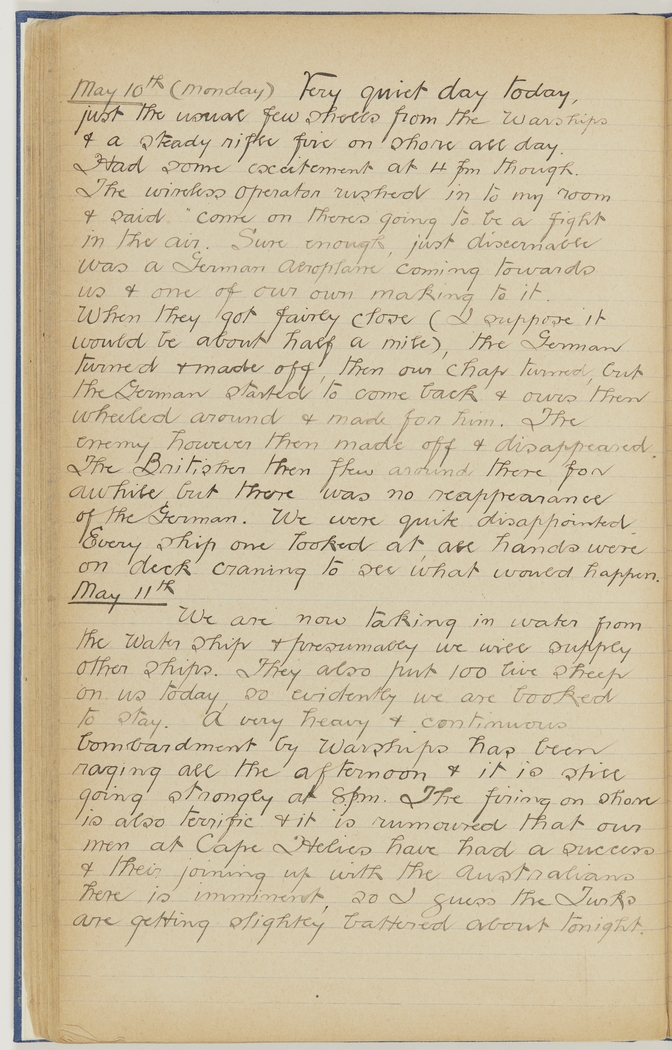 May 10th (Monday) Very quiet day today,
just the usual few shells from the Warships
& a steady rifle fire on shore all day.
Had some excitement at 4 pm though.
The wireless operator rushed in to my room
& said "come on theres going to be a fight
in the air. Sure enough, just discernable
was a German Aeroplane coming towards
us & one of our own making to it.
When they got fairly close (I suppose it
would be about half a mile), the German
turned & made off, then our chap turned, but
the German started to come back & ours then
wheeled around & made for him. The
enemy however then made off & disappeared.
The Britisher then flew around there for
awhile but there was no reappearance
of the German. We were quite disappointed
Every ship one looked at, all hands were
on deck craning to see what would happen.
May 11th
We are now taking in water from
the Water ship & presumably we will supply
other ships. They also put 100 live sheep
on us today, so evidently we are booked
to stay. A very heavy & continuous
bombardment by Warships has been
raging all the afternoon & it is still
going strongly at 8pm. The firing on shore
is also terrific & it is rumoured that our
men at Cape Helies have had a success
& their joining up with the Australians
here is imminent, so I guess the Turks
are getting slightly battered about tonight.